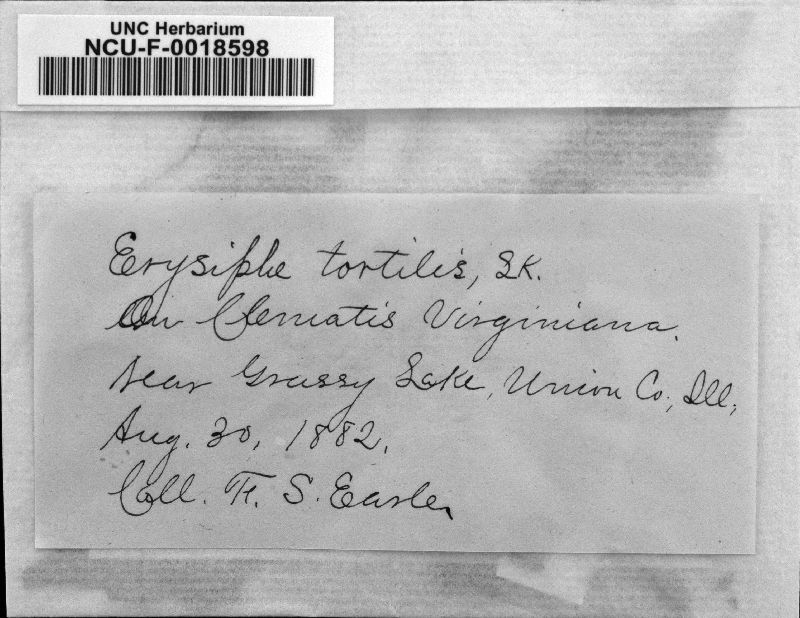 UNC Herbarium
NCU-F-0018598
Erysiphe tortilis, Lk.
On Clematis Virginiana.
Near Grassy Lake, Union Co., Ill,
Aug. 30, 1882.
Coll. F. S. Earle,